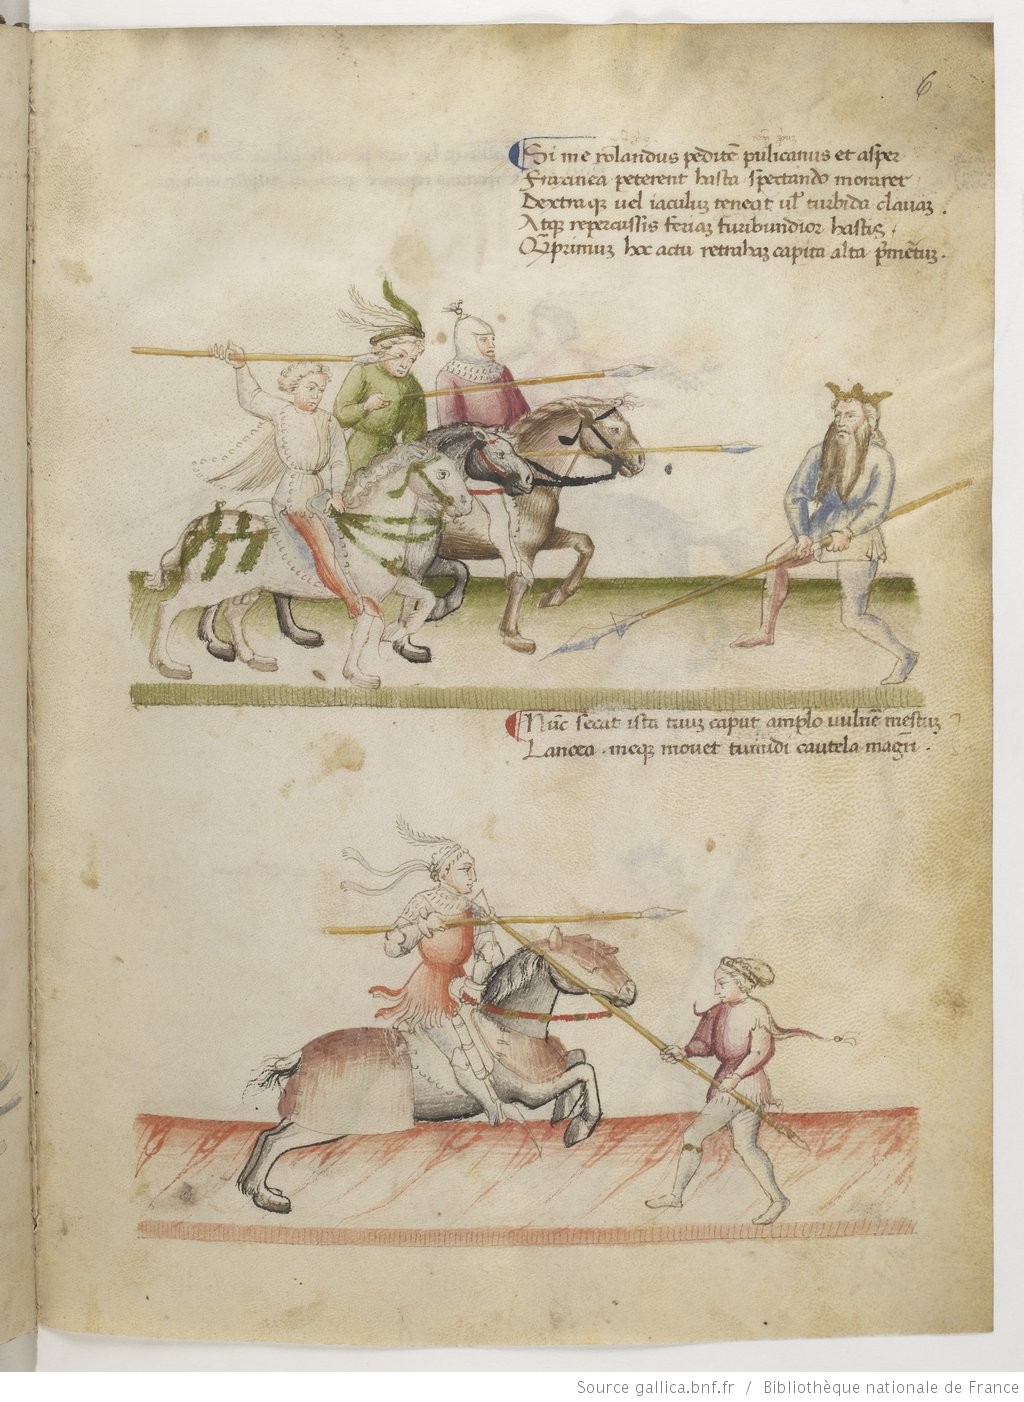 6
Si me rolandus peditē pulicanus et asper
Fraxinea peterent hasta spectando morarer
Dextraqꝫ uel iaculuꝫ teneat ul̄ turbida clauaꝫ.
Atqꝫ repercussis feriaꝫ furibundior hastis.
Qꝫprimuꝫ hoc actu retrahaꝫ capita alta p̄mētuꝫ.
Nūc secat ista tuuꝫ caput amplo uulnē mestuꝫ
Lancea. meqꝫ mouet tumidi cautela magr̄i.
Source gallica.bnf.fr / Bibliothèque nationale de France